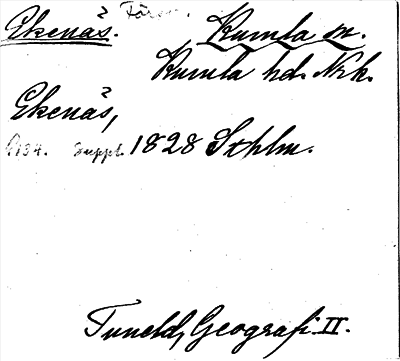 Ekenäs. Kumla sn.
Kumla hd. Nrk.
Ekenäs,
suppl. 1828 Sthlm.
Tuneld, Geografi II.